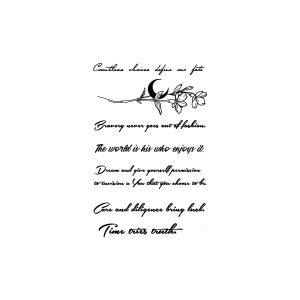 Countless choices define our fate
Bravery never goes out of fashion.
The world is his who enjoys it.
Dream and give yourself permission
to envision a You that you choose to be.
Care and diligence bring luck.
Time tries truth.